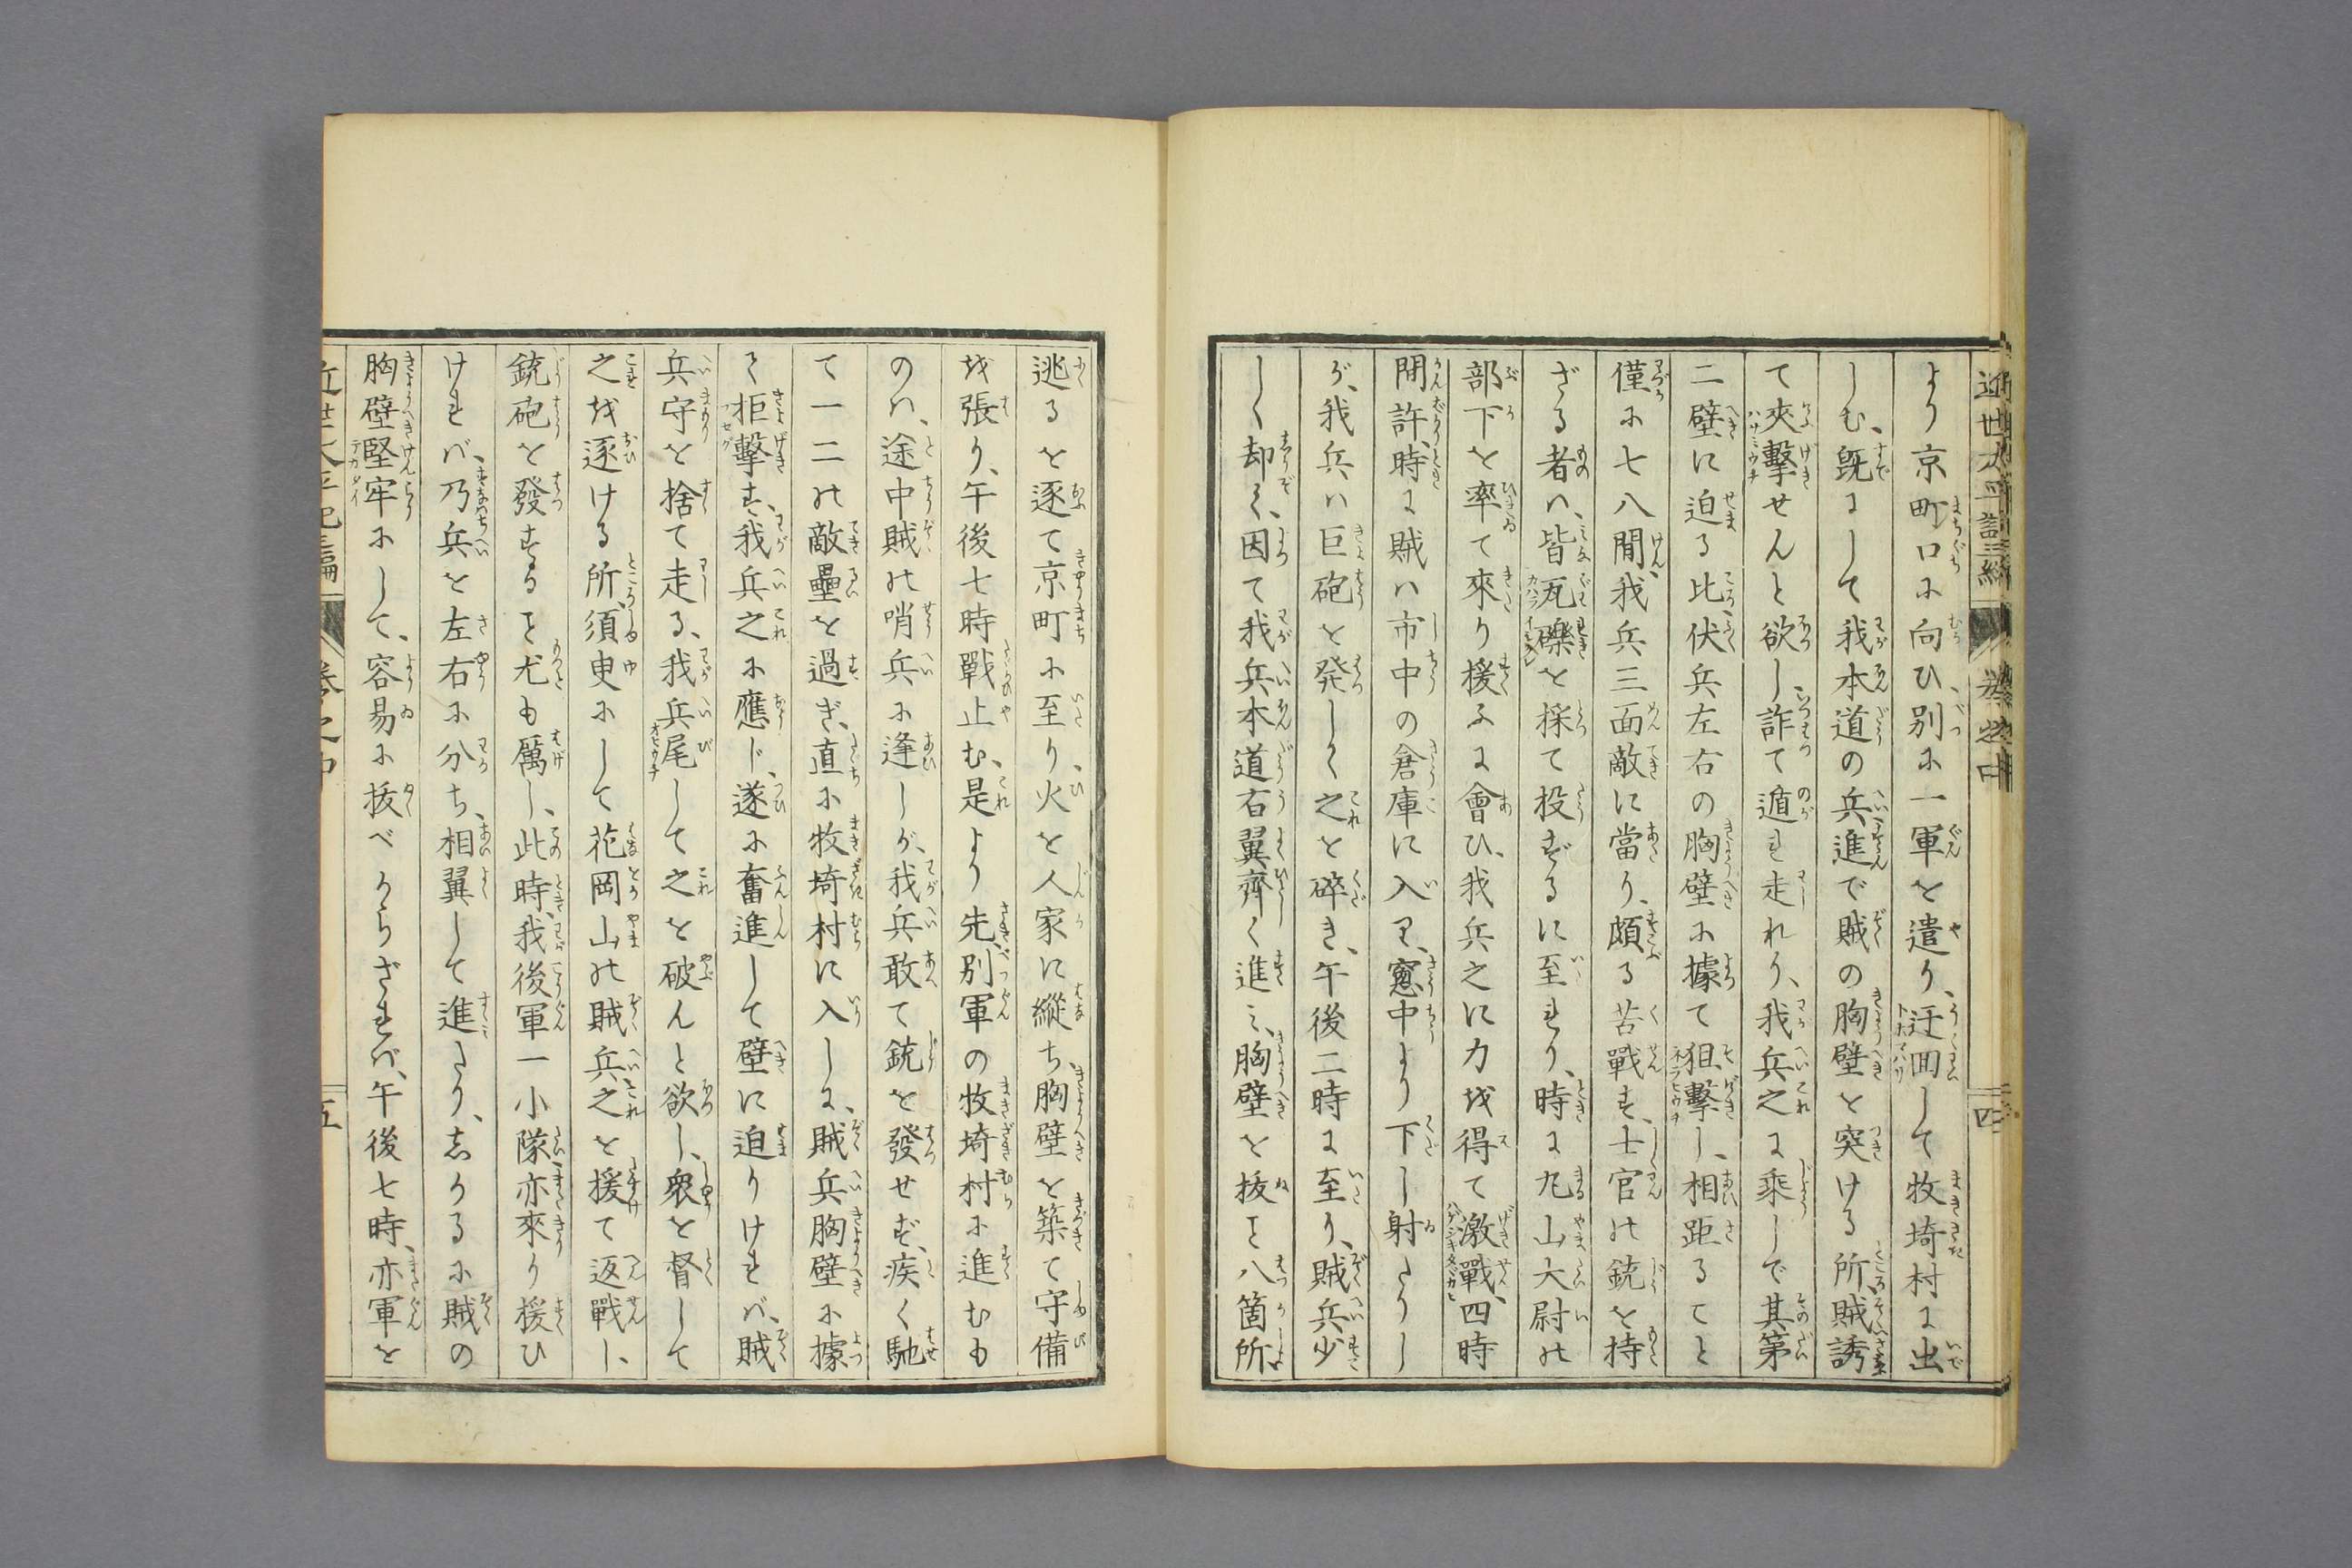 近世太平記三編　巻之中　四
より京町口に向ひ、別に一軍を遣り、迂回して牧埼村に出
しむ、既にして我本道の兵進で賊の胸壁を突ける所、賊誘
て夾擊せんと欲し、詐て遁れ走れり、我兵之に乘じで其第
二壁に迫る比、伏兵左右の胸壁に據て狙擊し、相距ること
僅に七八間、我兵三面敵に當り、頗る苦戰す、士官の銃を持
ざる者ハ、皆瓦礫を採て投ずるに至れり、時に丸山大尉の
部下を率て來り援ふに會ひ、我兵之に力を得て激戰、四時
間許、時に賊ハ市中の倉庫に入り、窻中より下し射たりし
が、我兵ハ巨砲を発して之を碎き、午後二時に至り、賊兵少
しく却く、因て我兵本道右翼齊く進ミ、胸壁を抜こと八箇所
逃るを逐て京町に至り、火を人家に縦ち、胸壁を築て守備
を張り、午後七時戰止む、是より先、別軍の牧埼村に進むも
のハ、途中賊の哨兵に逢しが、我兵敢て銃を發せず、疾く馳
て一二の敵壘を過ぎ、直に牧埼村に入しに、賊兵胸壁に據
て拒擊す、我兵之に應じ、遂に奮進して壁に迫りければ、賊
兵守を捨て走る、我兵尾して之を破んと欲し、衆を督して
之を逐ける所、須臾にして花岡山の賊兵之を援て返戰し、
銃砲を發すること尤も厲し、此時、我後軍一小隊亦來り援ひ
ければ、乃兵を左右に分ち、相翼して進たり、志かるに賊の
胸壁堅牢にして、容易に抜べからざれば、午後七時、亦軍を
近世太平記三編　巻之中　五